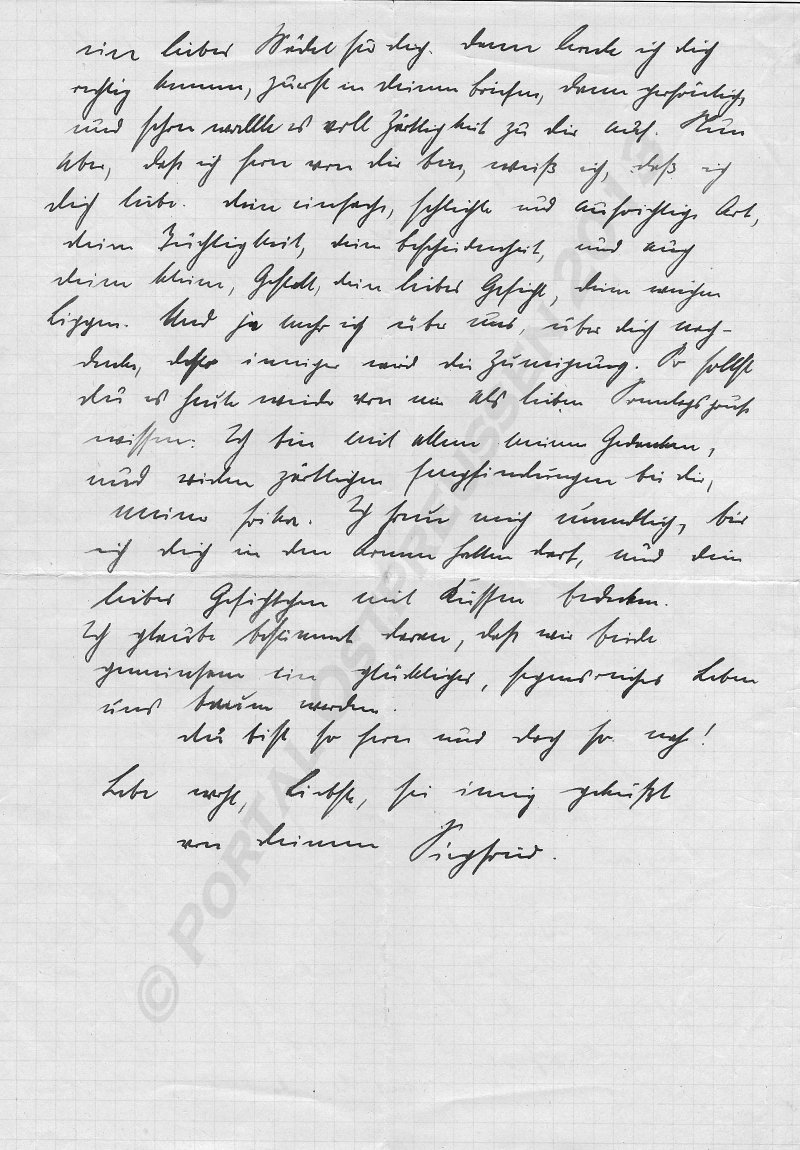 ein liebes Mädel für dich. Dann lernte ich dich
richtig kennen, zuerst in deinen Briefen, dann persönlich,
und schon wallte es voll Zärtligkeit zu dir auf. Nun
aber, daß ich fern von dir bin, weiß ich, daß ich
dich liebe. Deine einfache, schlichte und aufrichtige Art,
deine Tüchtigkeit, deine Bescheidenheit, und auch
deine kleine, Gestalt, dein liebes Gesicht, deine weichen
Lippen. Und je mehr ich über uns, über dich nach-
denke, desto inniger wird die Zuneigung. So sollst
du es heute wieder von mir als lieben Sonntagsgruß
wissen. Ich bin mit allen meinen Gedanken,
und zärtlichen Empfindungen bei dir,
meine Erika. Ich freue mich unendlich, bis
ich dich in den Armen halten darf, und dein
liebes Gesichtchen mit Küssen bedecken.
Ich glaube bestimmt daran, daß wir beide
gemeinsam ein glückliches, segensreiches Leben
uns bauen werden.
Du bist so fern und doch so nah!
Lebe wohl, Liebste, sei innig geküßt
von deinem Siegfried.
© PORTAL-OSTPREUSSEN 2013